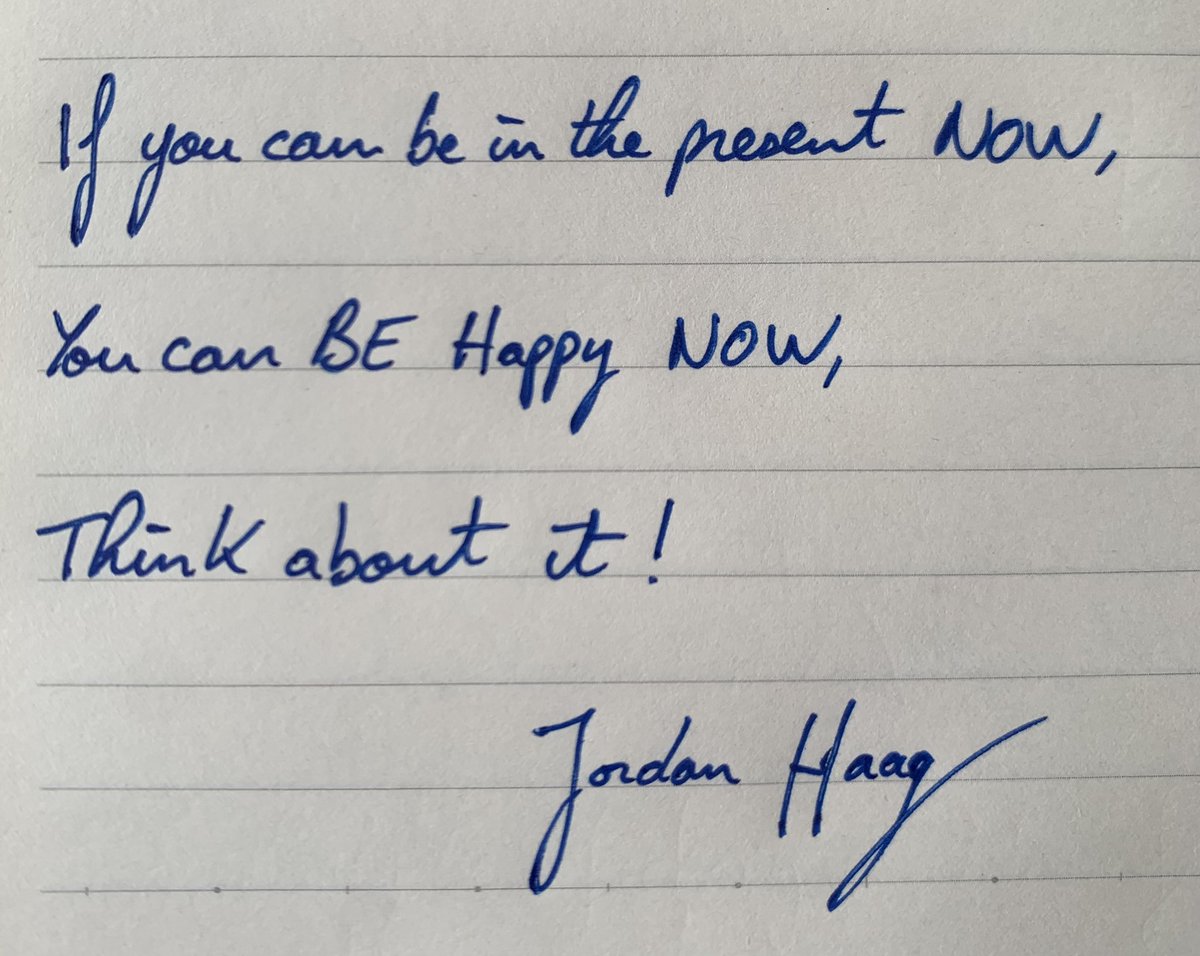 If you can be in the present NOW,
You can BE Happy NOW,
Think about it!
Jordan Haag